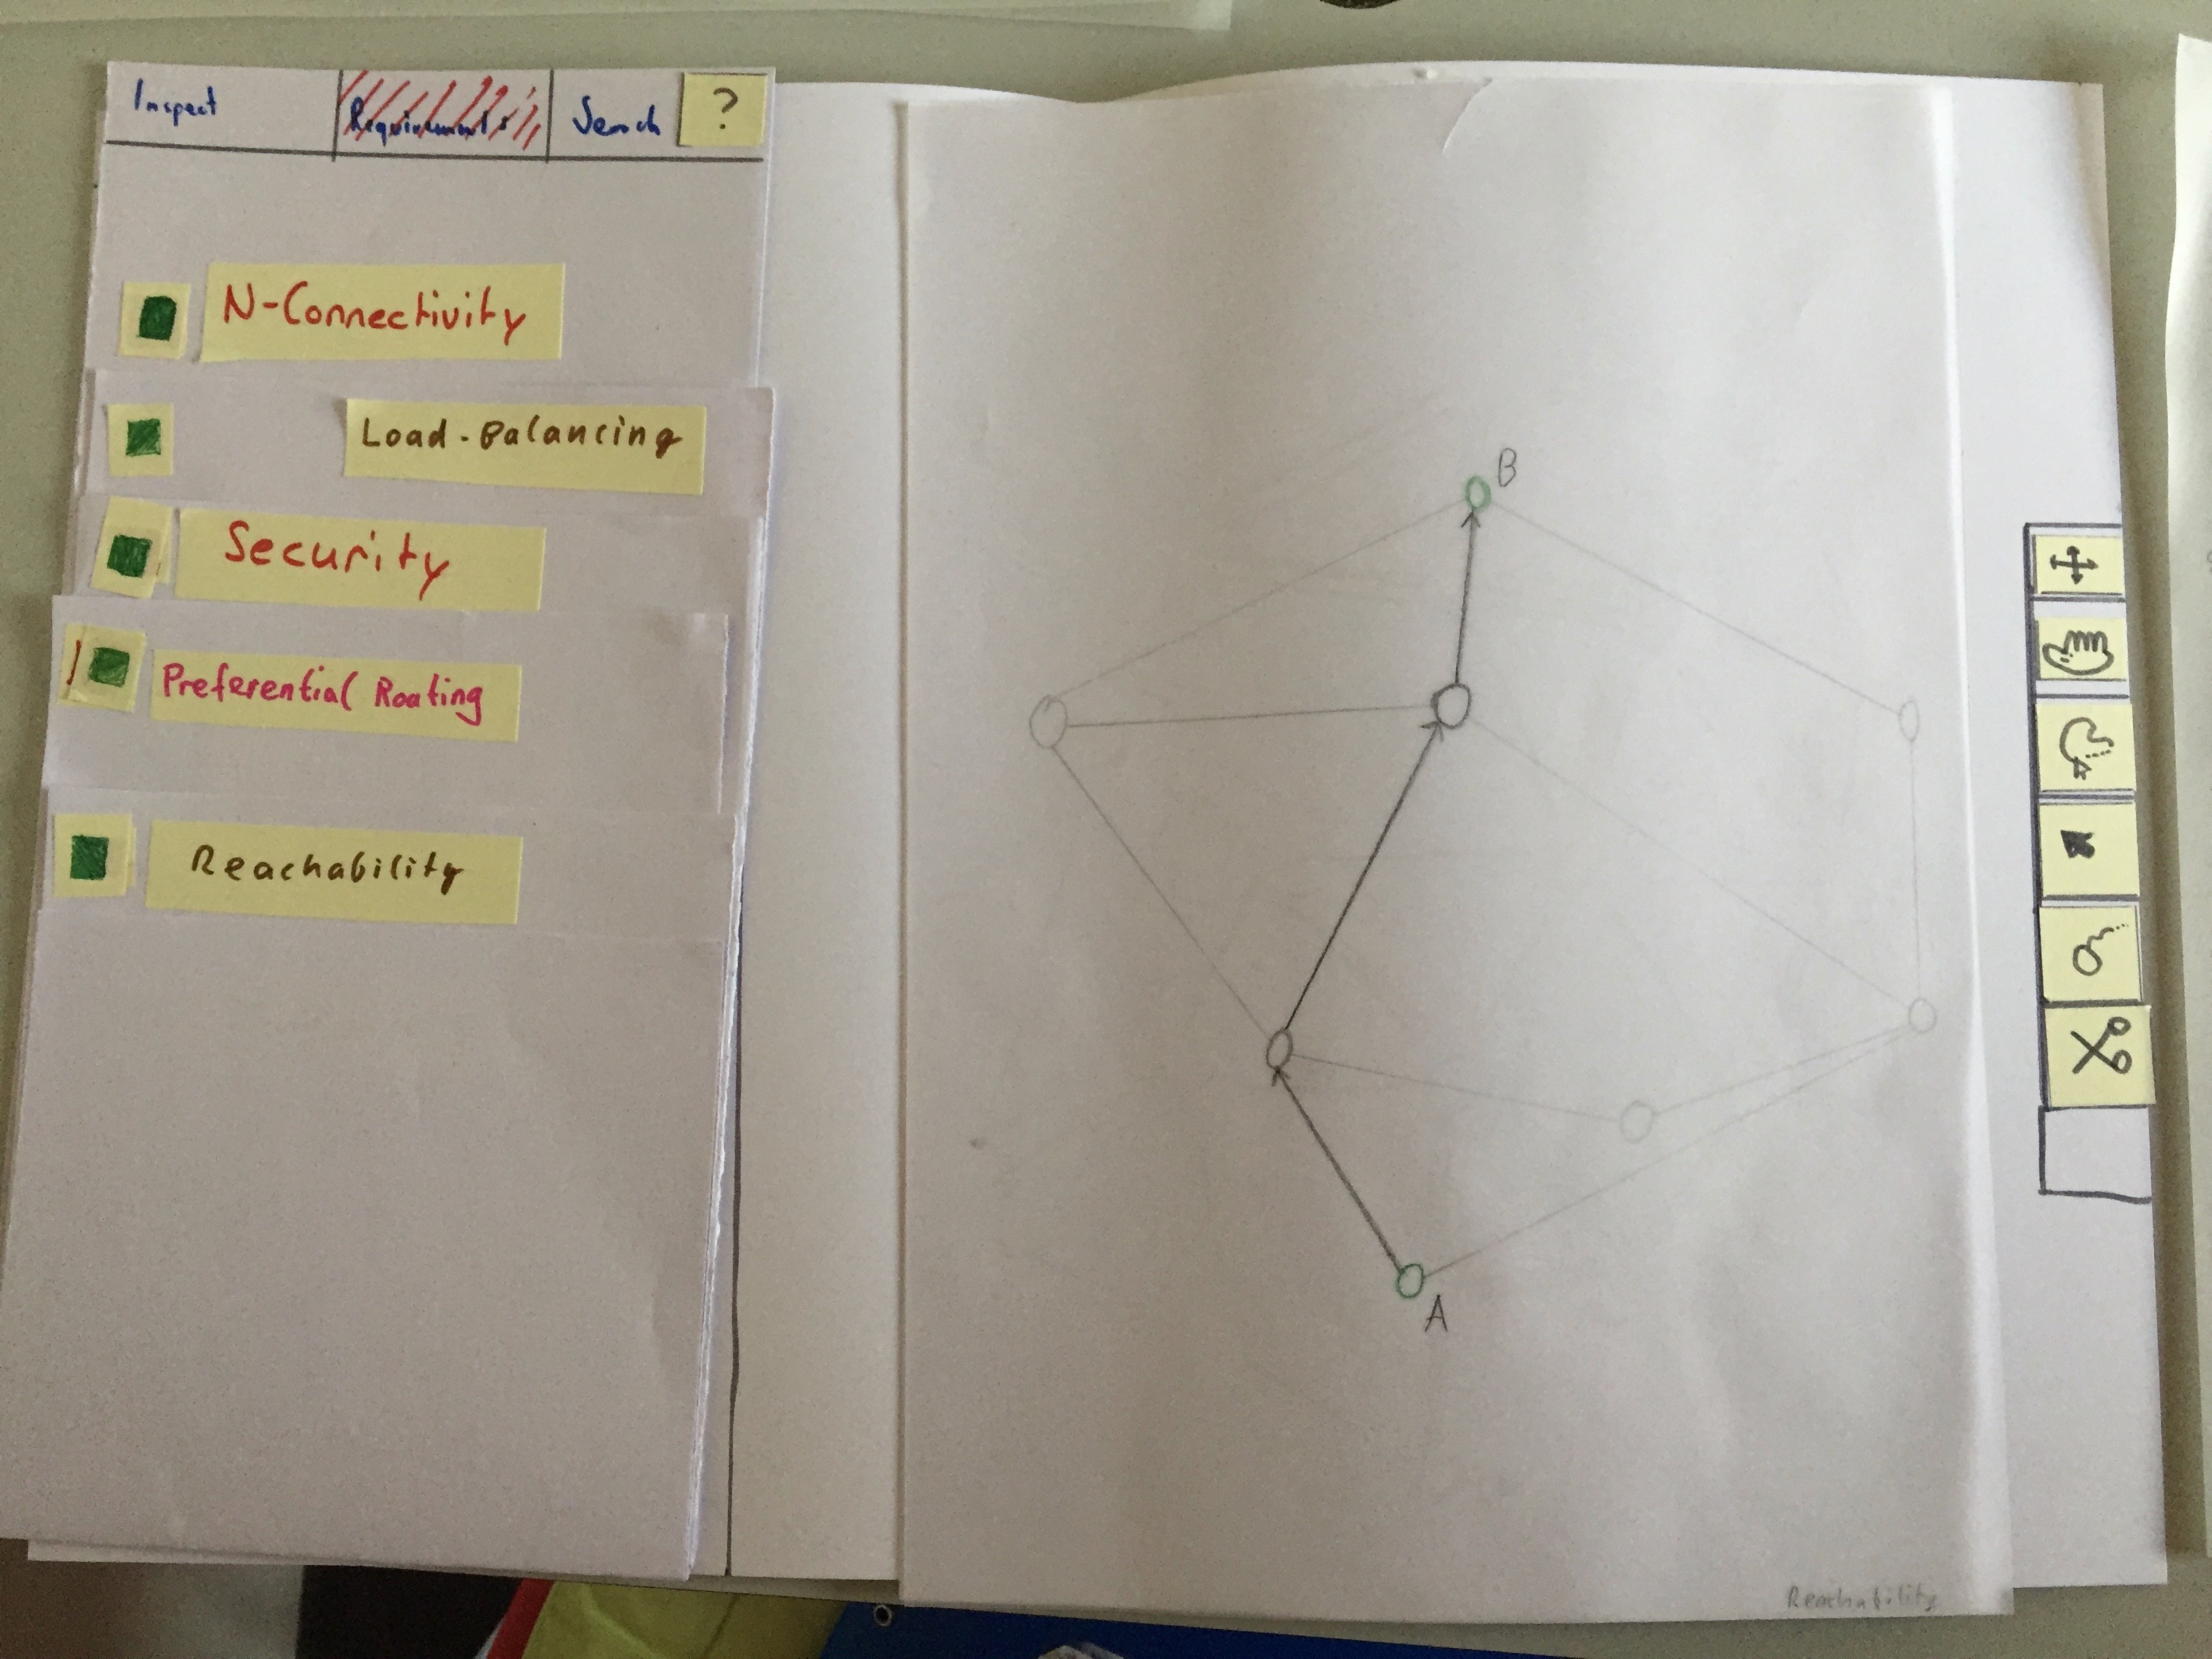 Inspect Requirements Search ?
N-Connectivity
Load-Balancing
Security
Preferential Routing
Reachability
B
A
Reachability